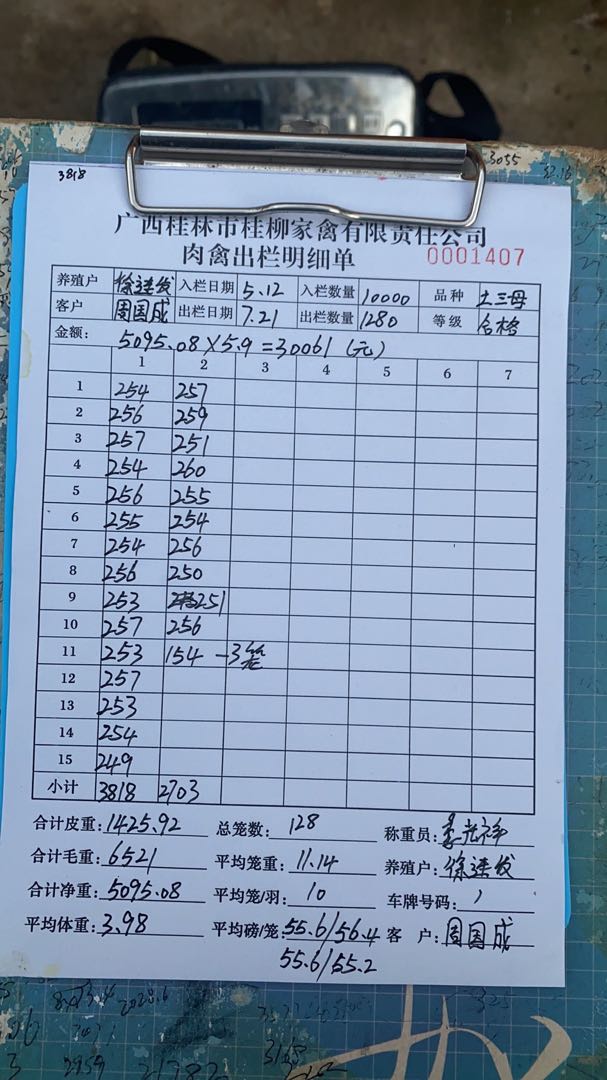 3818
3055
广西桂林市桂柳家禽有限责任公司
肉禽出栏明细单 0001407
养殖户 徐连发 入栏日期 5.12 入栏数量 10000 品种 土三母
客户 周国成 出栏日期 7.21 出栏数量 1280 等级 合格
金额: 5095.08×5.9=30061(元)
1 2 3 4 5 6 7
1 254 257
2 256 259
3 257 251
4 254 260
5 256 255
6 255 254
7 254 256
8 256 250
9 253 251
10 257 256
11 253 154 -3笼
12 257
13 253
14 254
15 249
小计 3818 2703
合计皮重: 1425.92 总笼数: 128 称重员:
合计毛重: 6521 平均笼重: 11.14 养殖户: 徐连发
合计净重: 5095.08 平均笼/羽: 10 车牌号码: /
平均体重: 3.98 平均磅/笼: 55.6/56.4 客户: 周国成
55.6/55.2